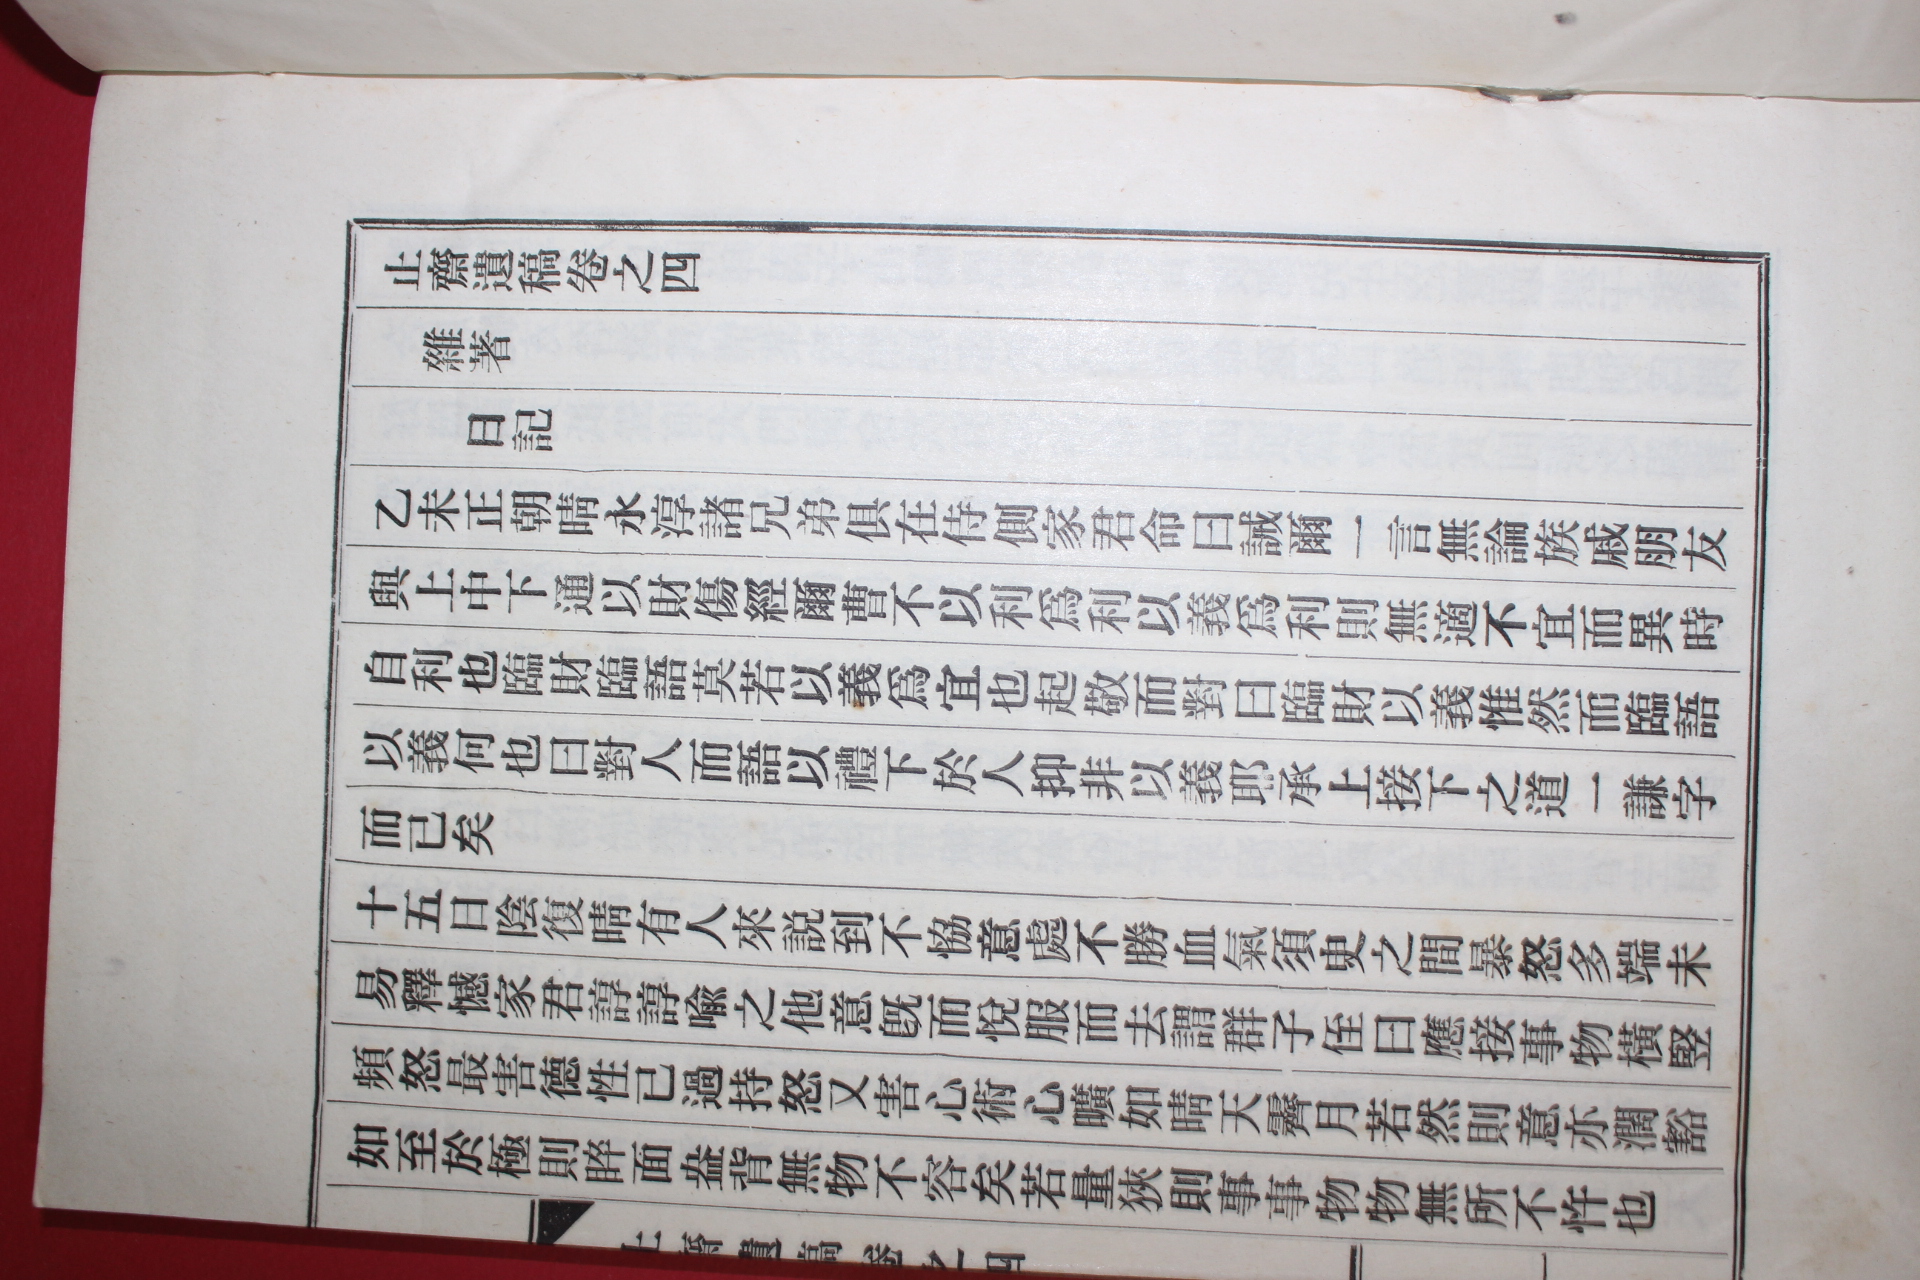 止齋遺稿卷之四
雜著
日記
乙未正朝晴永淳諸兄弟俱在侍側家君命曰誠爾一言無論族戚朋友
與上中下通以財傷經爾曹不以利爲利以義爲利則無適不宜而異時
自利也臨財臨語莫若以義爲宜也起敬而對曰臨財以義惟然而臨語
以義何也曰對人而語以禮下於人抑非以義耶承上接下之道一謙字
而已矣
十五日陰復晴有人來說到不恊意處不勝血氣須臾之間暴怒多端未
易釋憾家君諄諄喩之他意旣而悅服而去謂群子侄曰應接事物橫竪
頻怒最害德性已過持怒又害心術心曠如晴天霽月若然則意亦濶豁
如至於極則睟面盎背無物不容矣若量狹則事事物物無所不忤也
止齋遺稿卷之四